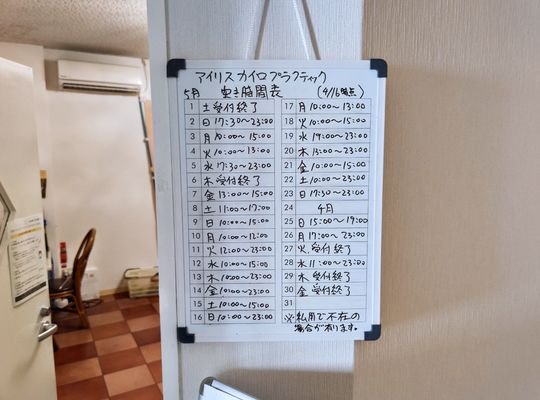 アイリスカイロプラクティック
5月 空き時間表 (4/16時点)
1 土 受付終了
2 日 17:30〜23:00
3 月 10:00〜15:00
4 火 10:00〜13:00
5 水 17:30〜23:00
6 木 受付終了
7 金 13:00〜15:00
8 土 11:00〜17:00
9 日 10:00〜15:00
10 月 10:00〜12:00
11 火 12:00〜23:00
12 水 10:00〜15:00
13 木 10:00〜23:00
14 金 10:00〜23:00
15 土 10:00〜15:00
16 日 10:00〜23:00
17 月 10:00〜13:00
18 火 10:00〜15:00
19 水 19:00〜23:00
20 木 13:00〜23:00
21 金 10:00〜15:00
22 土 10:00〜23:00
23 日 17:30〜23:00
24 4月
25 日 15:00〜19:00
26 月 17:00〜23:00
27 火 受付終了
28 水 11:00〜23:00
29 木 受付終了
30 金 受付終了
31
※私用で不在の
場合が有ります。